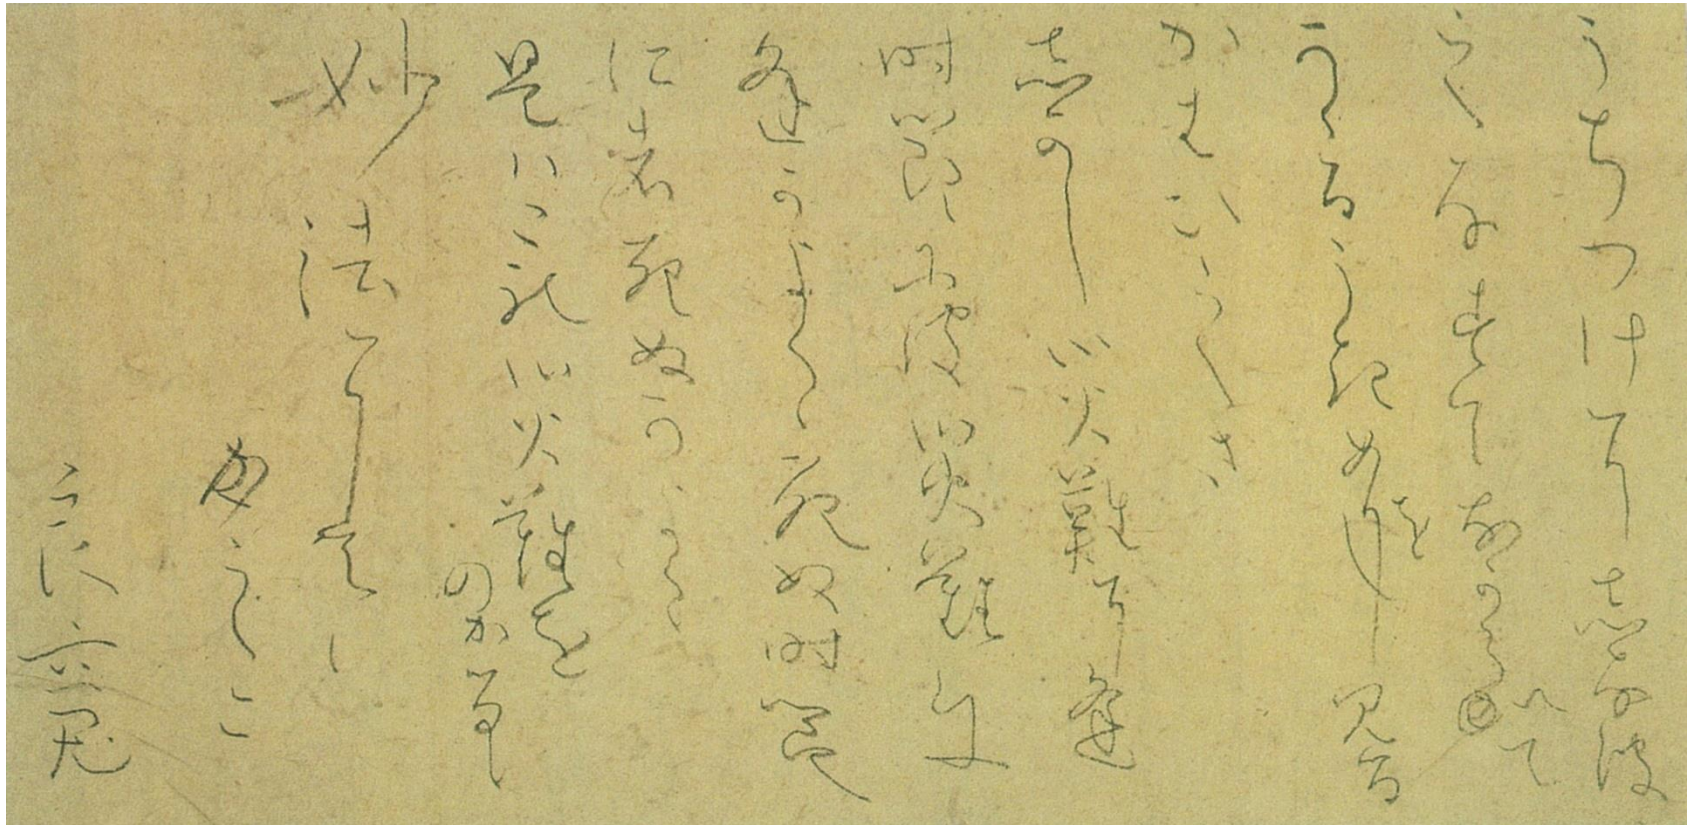 うちつけに志なは
志なすてなからへて
かゝるうきめを見る
かわひしさ
志かし災難に逢
時節には災難に
逢かよく候死ぬ時節
には死ぬかよく候
是ハこれ災難をのかるゝ
妙法にて候
かしこ
良寛